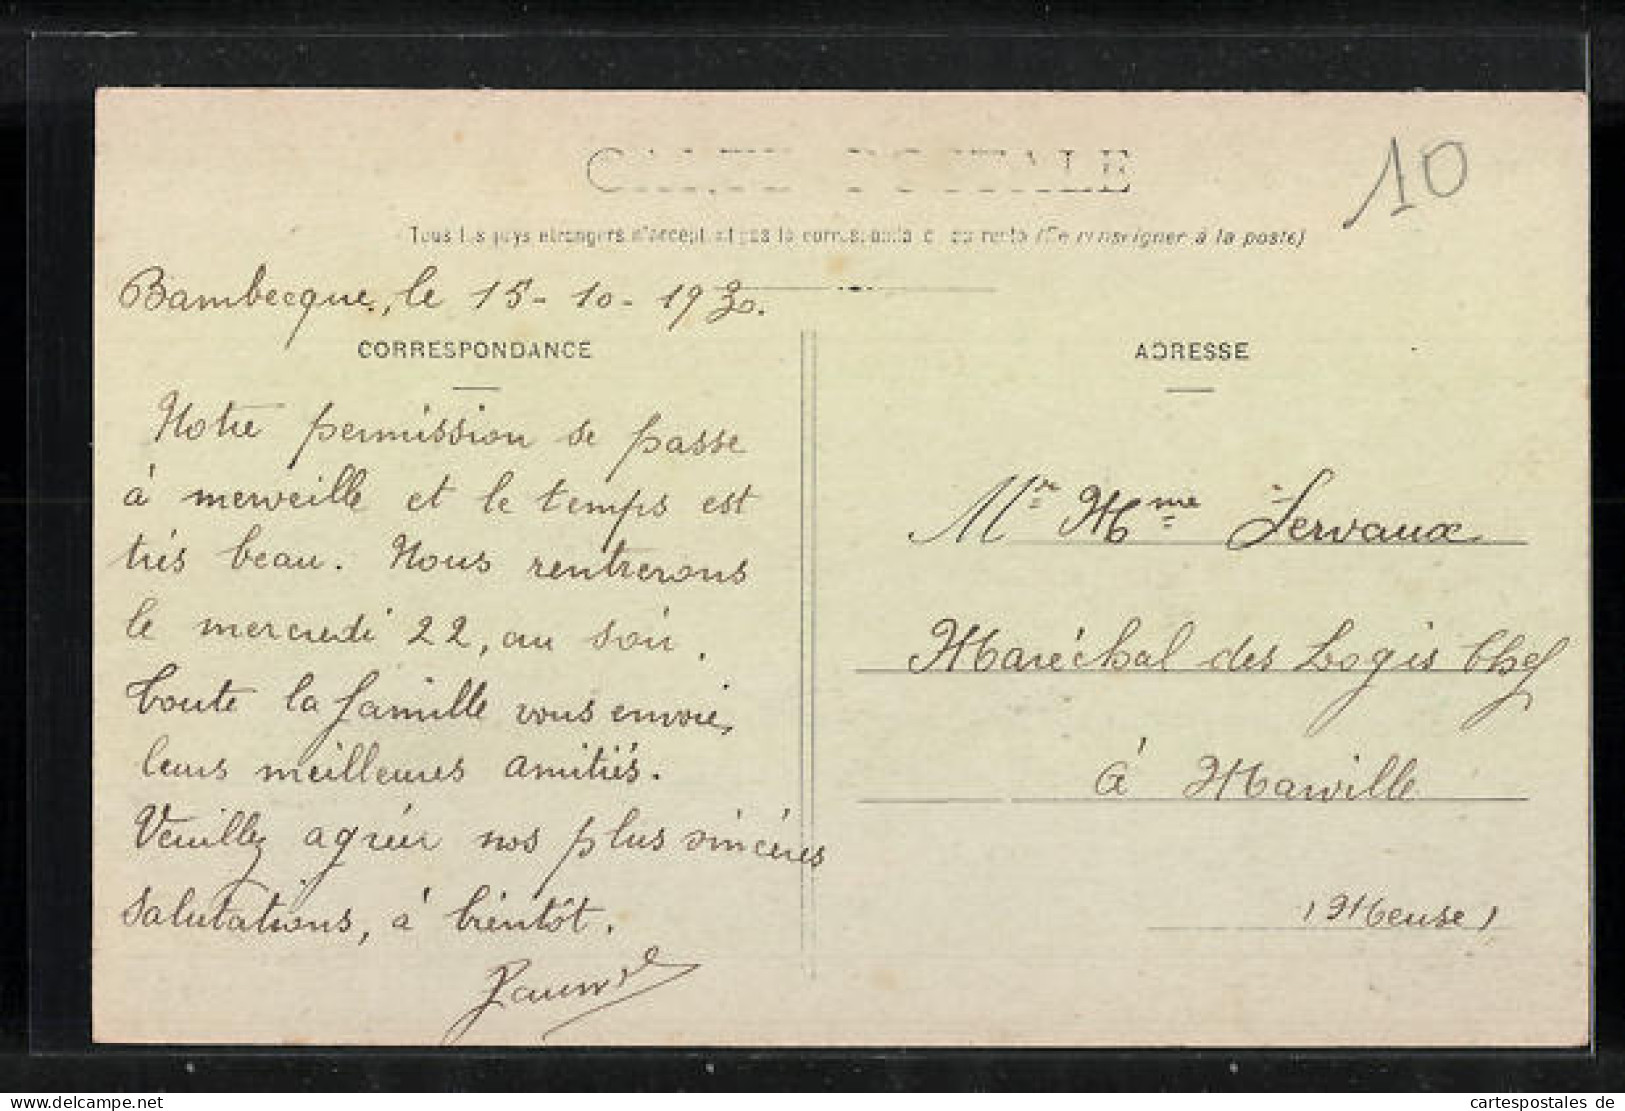 CARTE POSTALE
10
Tous les pays étrangers n'acceptent pas la correspondance au recto (Se renseigner à la poste)
Bambecque, le 15-10-1930.
CORRESPONDANCE
ADRESSE
Notre permission se passe
à merveille et le temps est
très beau. Nous rentrerons
le mercredi 22, au soir.
Toute la famille vous envoie,
leurs meilleures amitiés.
Veuillez agréer nos plus sincères
salutations, à bientôt.
Mr Mme Servaux
Maréchal des Logis Chef
à Marville
(Meuse)
delcampe.net
cartespostales de